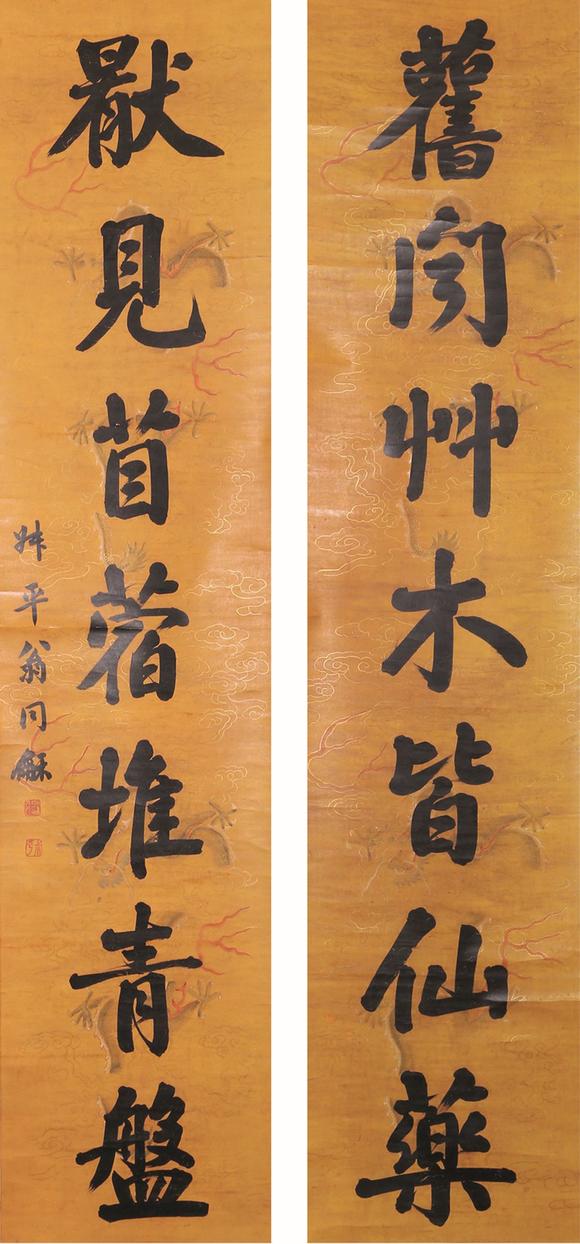 舊聞艸木皆仙藥
猒見苜蓿堆青盤
叔平翁同龢